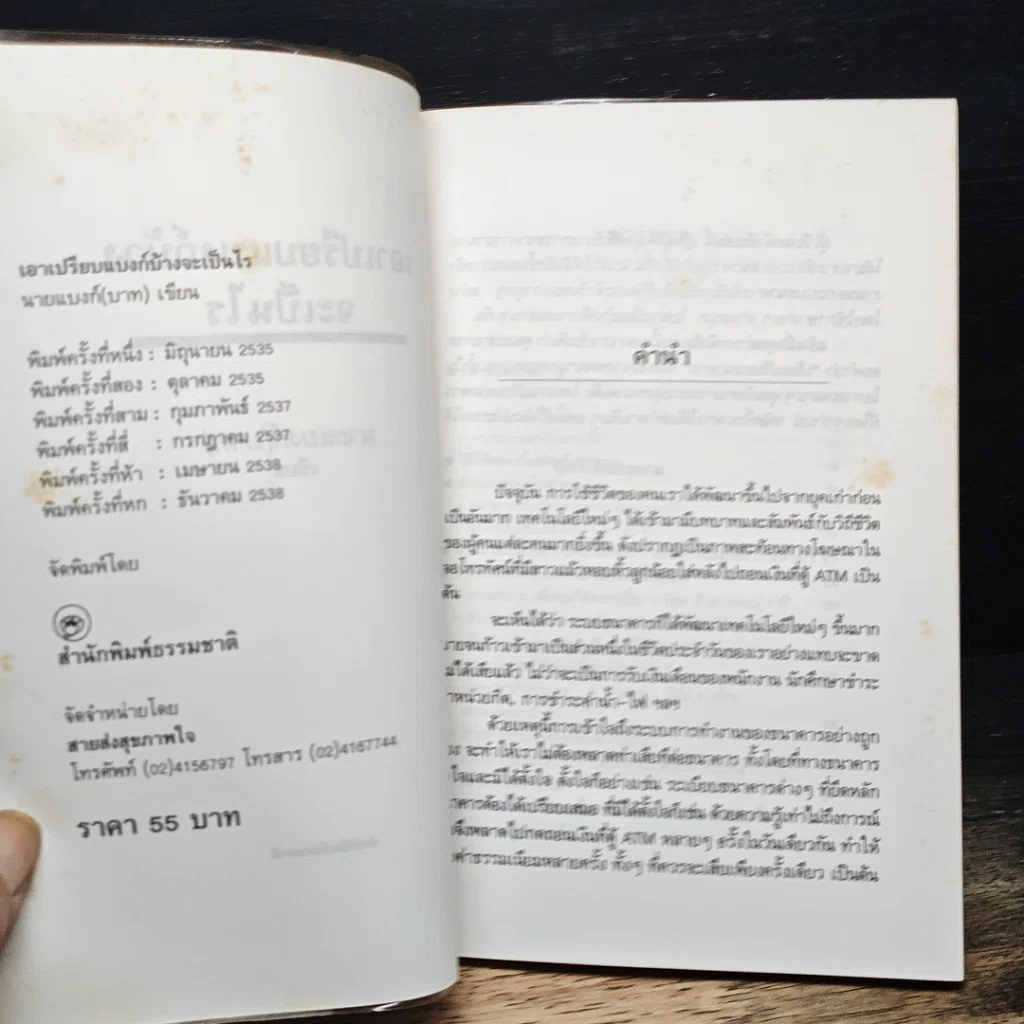 เอาเปรียบแบงก์บ้างจะเป็นไร
นายแบงก์(บาท) เขียน
พิมพ์ครั้งที่หนึ่ง : มิถุนายน 2535
พิมพ์ครั้งที่สอง : ตุลาคม 2535
พิมพ์ครั้งที่สาม : กุมภาพันธ์ 2537
พิมพ์ครั้งที่สี่ : กรกฎาคม 2537
พิมพ์ครั้งที่ห้า : เมษายน 2538
พิมพ์ครั้งที่หก : ธันวาคม 2538
จัดพิมพ์โดย
สำนักพิมพ์ธรรมชาติ
จัดจำหน่ายโดย
สายส่งสุขภาพใจ
โทรศัพท์ (02)4156797 โทรสาร (02)4167744
ราคา 55 บาท
คำนำ
ปัจจุบัน การใช้ชีวิตของคนเราได้พัฒนาขึ้นไปจากยุคเก่าก่อน
เป็นอันมาก เทคโนโลยีใหม่ๆ ได้เข้ามามีบทบาทและสัมพันธ์กับวิถีชีวิต
ของผู้คนแต่ละคนมากยิ่งขึ้น ดังปรากฏเป็นภาพสะท้อนทางโฆษณาใน
จอโทรทัศน์ที่มีสาวแม้วหอบหิ้วลูกน้อยใส่หลังไปถอนเงินที่ตู้ ATM เป็น
ต้น
จะเห็นได้ว่า ระบบธนาคารที่ได้พัฒนาเทคโนโลยีใหม่ๆ ขึ้นมาก
มายจนก้าวเข้ามาเป็นส่วนหนึ่งในชีวิตประจำวันของเราอย่างแทบจะขาด
ไม่ได้เสียแล้ว ไม่ว่าจะเป็นการรับเงินเดือนของพนักงาน นักศึกษาชำระ
ค่าหน่วยกิต, การชำระค่าน้ำ-ไฟ ฯลฯ
ด้วยเหตุนี้การเข้าใจถึงระบบการทำงานของธนาคารอย่างถูก
จะทำให้เราไม่ต้องพลาดท่าเสียทีต่อธนาคาร ทั้งโดยที่ทางธนาคาร
ตั้งใจและมิได้ตั้งใจ ตั้งใจก็อย่างเช่น ระเบียบธนาคารต่างๆ ที่ยึดหลัก
ธนาคารต้องได้เปรียบเสมอ ที่มิได้ตั้งใจก็เช่น ด้วยความรู้เท่าไม่ถึงการณ์
จึงพลาดไปกดถอนเงินที่ตู้ ATM หลายๆ ครั้งในวันเดียวกัน ทำให้
ค่าธรรมเนียมหลายครั้ง ทั้งๆ ที่ควรจะเสียเพียงครั้งเดียว เป็นต้น